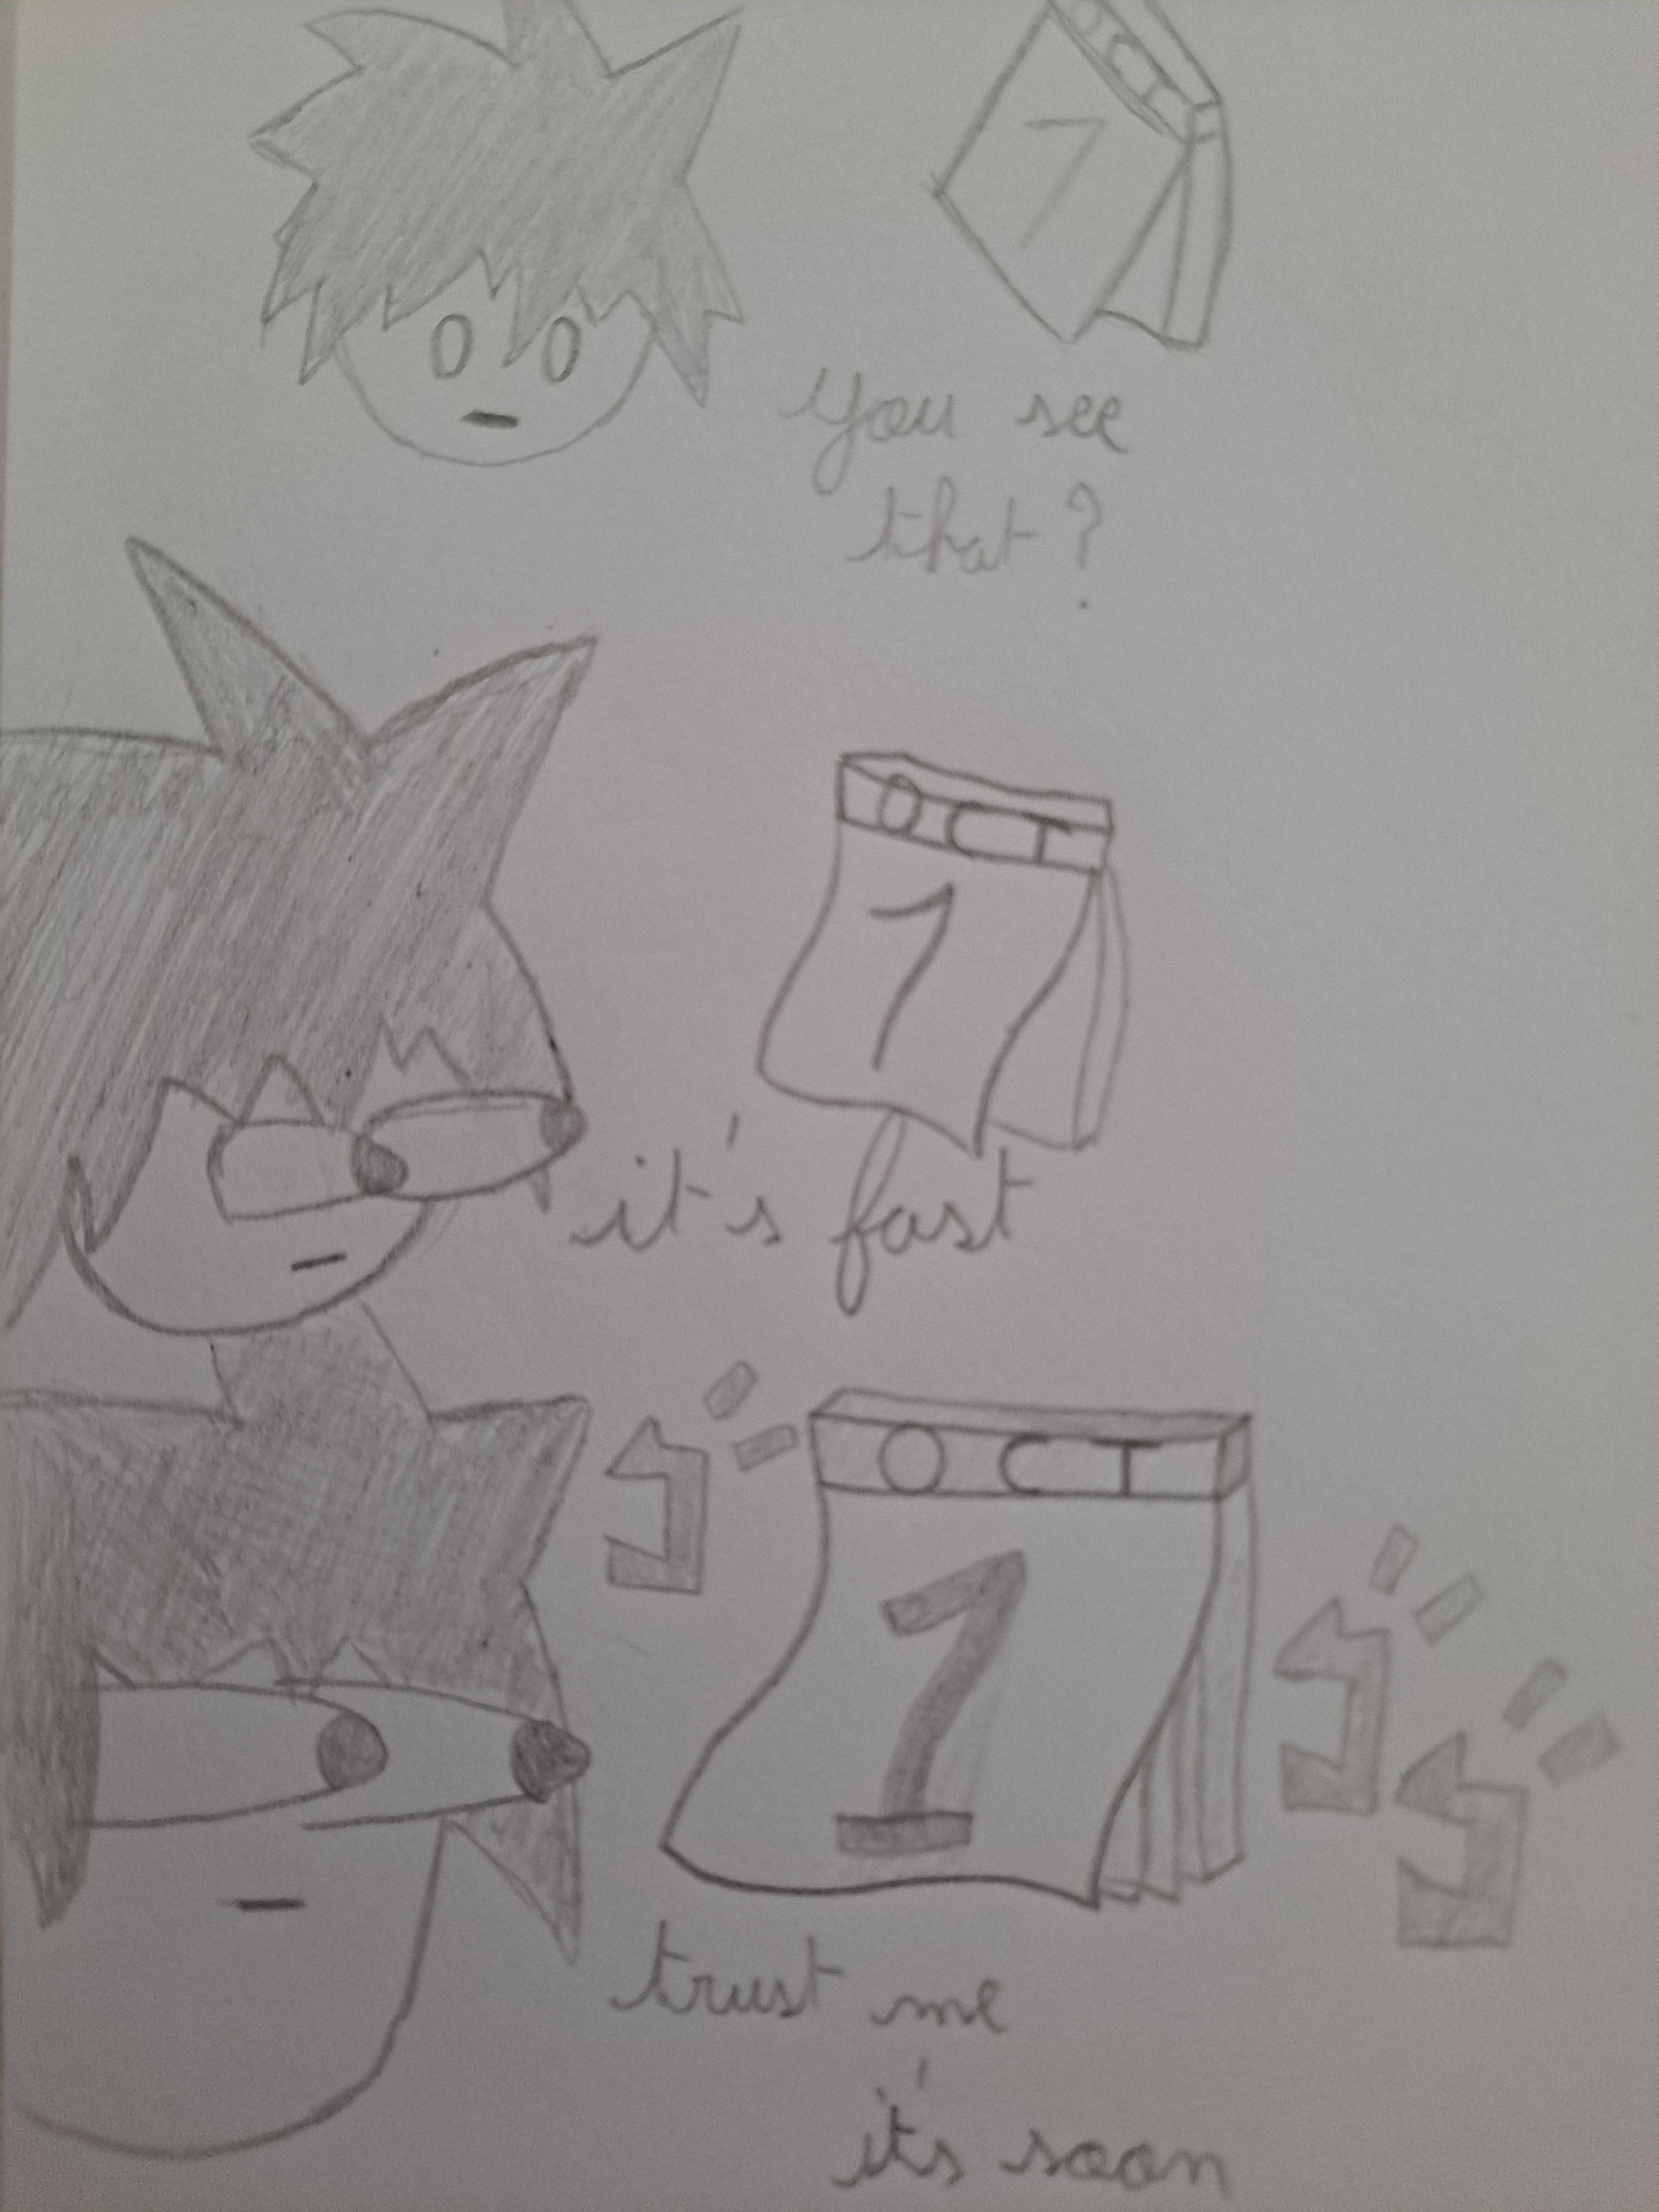 OCT
7
you see
that?
OCT
1
it's fast
OCT
1
trust me
it's soon